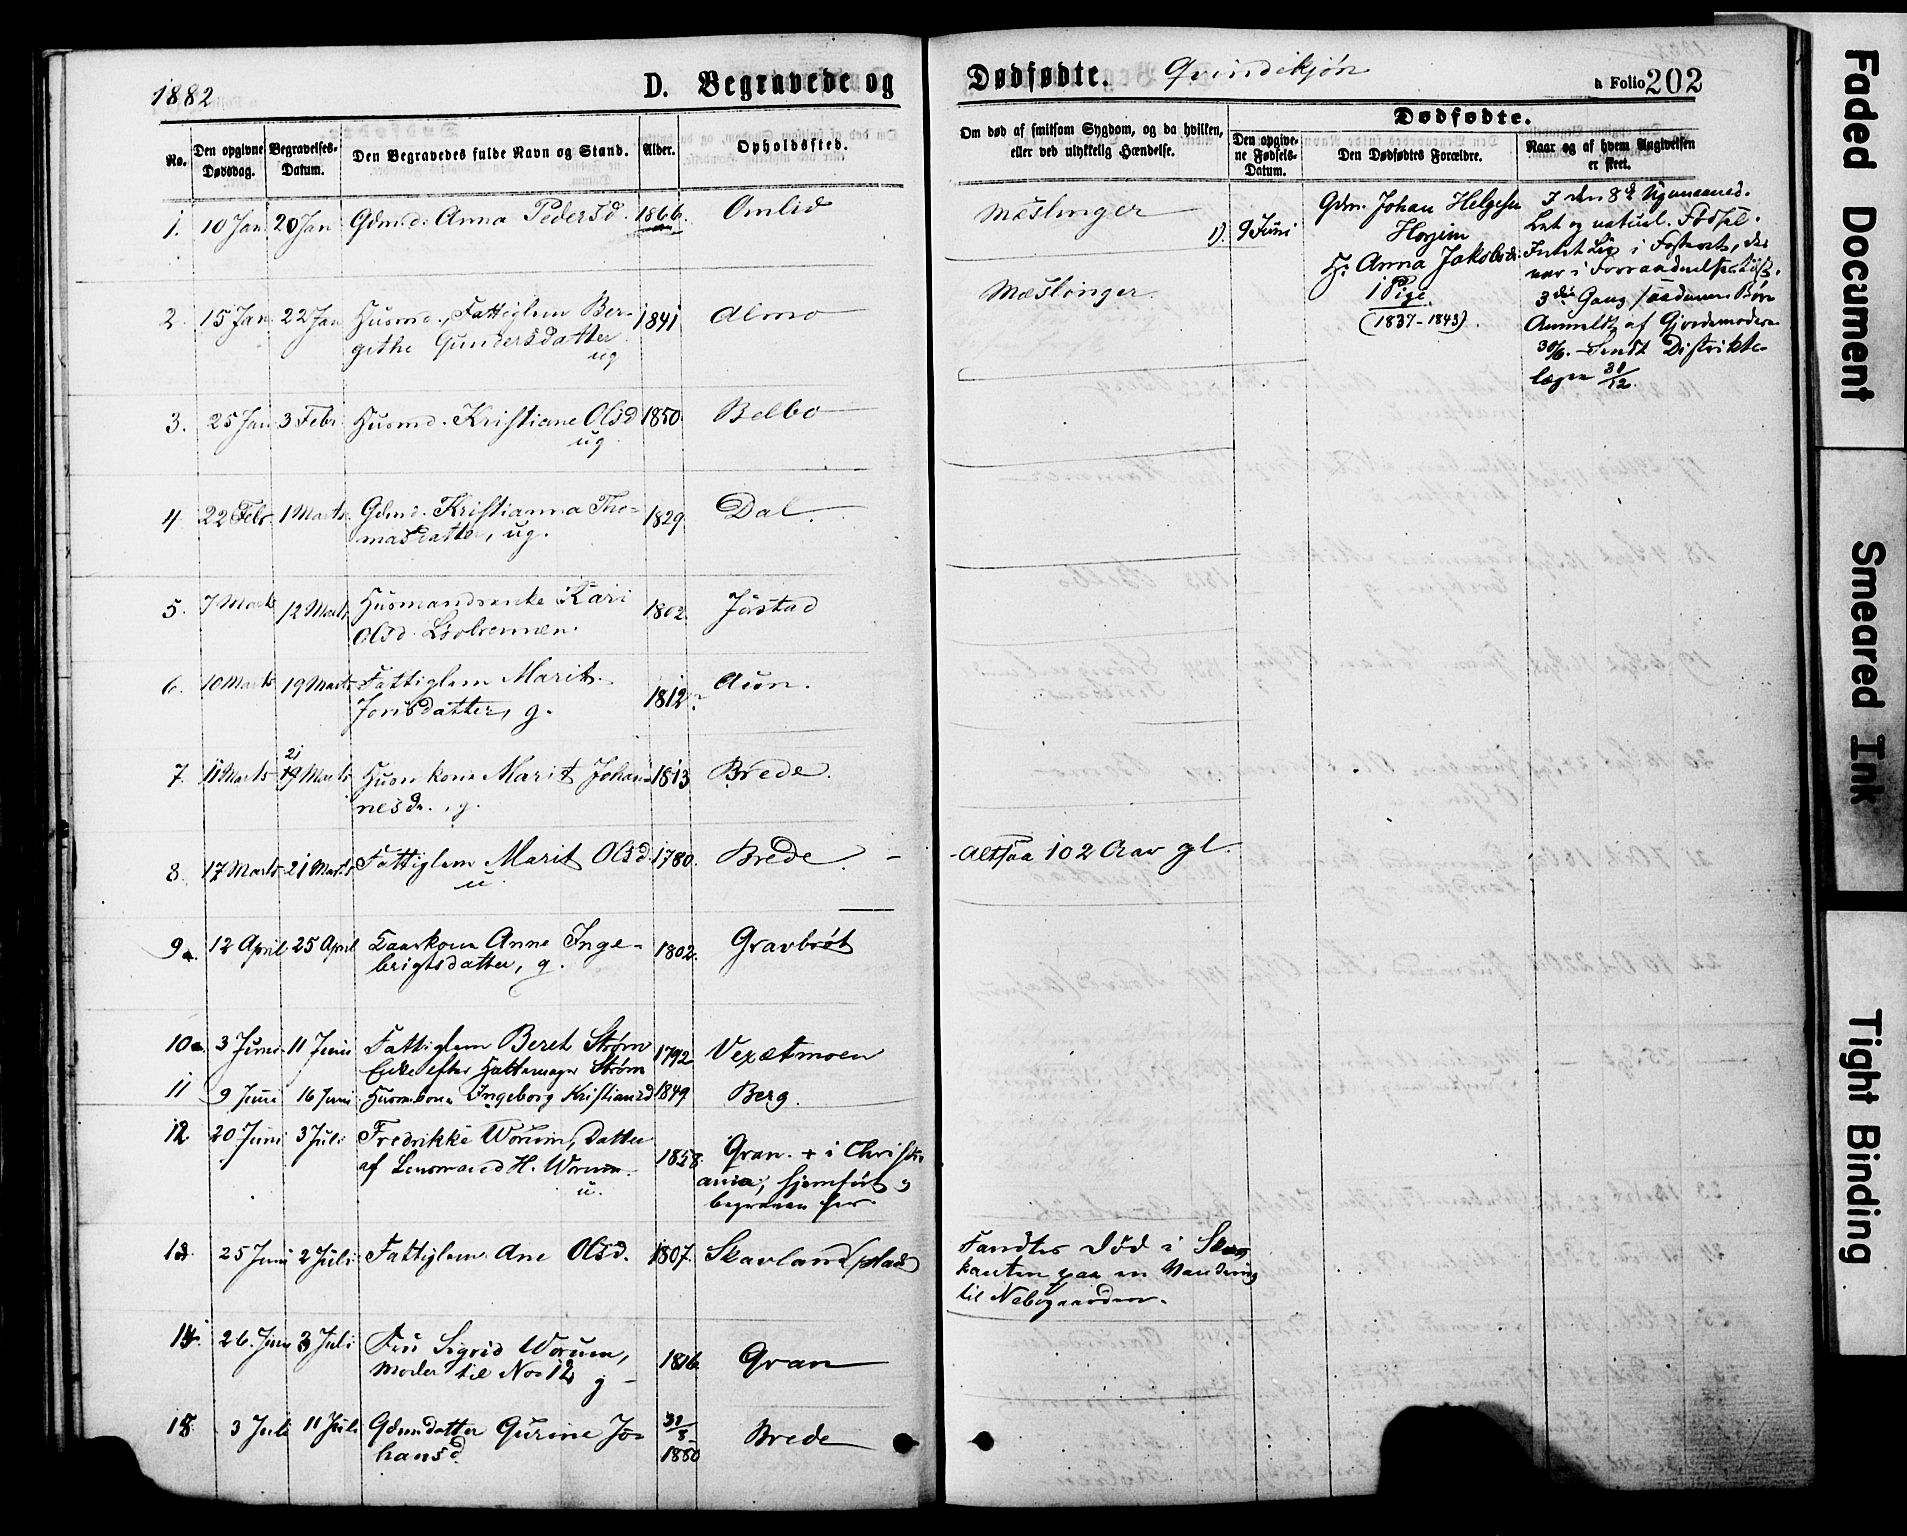 1882
D. Begravede og
Dødfødte. Qvindekjøn
a Folio 202
No.
Den opgivne Dødsdag.
Begravelses-Datum.
Den Begravedes fulde Navn og Stand.
Alder.
Opholdssted.
Om død af smitsom Sygdom, og da hvilken,
eller ved ulykkelig Hændelse.
Dødfødte.
Den opgivne Fødsels-Datum.
Den Dødfødtes Forældre.
Naar og af hvem Angivelsen
er skeet.
1. 10 Jan 20 Jan Gdmd. Anna Pedersd. 1866. Omlid Mæslinger
2. 15 Jan 22 Jan Husmd., Fattiglem Ber-
githe Gundersdatter 1841 Almo Mæslinger.
ug
3. 25 Jan 3 Febr Husmd. Kristiane Olsd 1850. Belbo
ug.
4 22 Febr. 1 Marts Gdmd. Kristianna Tho-
masdatter, ug. 1829. Dal.
5. 7 Marts 12 Marts Husmandsenke Kari
Olsd. 1802. Jøstad
6. 10 Marts 19 Marts Fattiglem Marit
Jonsdatter, g. 1812? Aun.
7. 11 Marts 21 Marts Husmkone Marit Johan-
nesdr., g. 1813 Brede.
8. 17 Marts 21 Marts Fattiglem Marit Olsd. 1780. Brede. - Altsaa 102 Aar gl.
u.
9. 12 April 25 April Kaarkone Anne Inge-
brigtsdatter, g. 1802. Gravbrøt
10 3 Juni 11 Juni Fattiglem Beret Strøm
Enke efter Hattemager Strøm 1792 Vexetmoen
11 9 Juni 16 Juni Husmkone Ingeborg Kristiansd 1849 Berg.
12 20 Juni 3 Juli Fredrikke Worum, Datter
af Lensmand H. Worum. 1858. Gran. + i Christi-
u. ania, hjemført og
begraven her
13. 25 Juni 2 Juli Fattiglem Ane Olsd. 1807. Skavland/plads Fandtes død i Skog
kanten paa en Vandring
til Nabogaarden.
14. 26. Juni 3 Juli Fru Sigrid Worum,
Moder til No 12 g - 1816. Gran
15 3 Juli 11 Juli Gdmdatter Gurine Jo-
hansd. 1880 Brede
1). 9 Juni
Gdm. Johan Helgesen
H. Anna Jakobsd.
1 Pige.
(1837-1843).
I den 8de Ugemaaned.
Let og naturl. Fødsel.
Intet Liv i Fosteret, der
var i Forraadnelsestilst.
3die Gang saadanne Børn
Anmeldt af Gjordemoderen
30/6. - Sendt Distrikts-
lægen 31/12.
Faded Document
Smeared Ink
Tight Binding